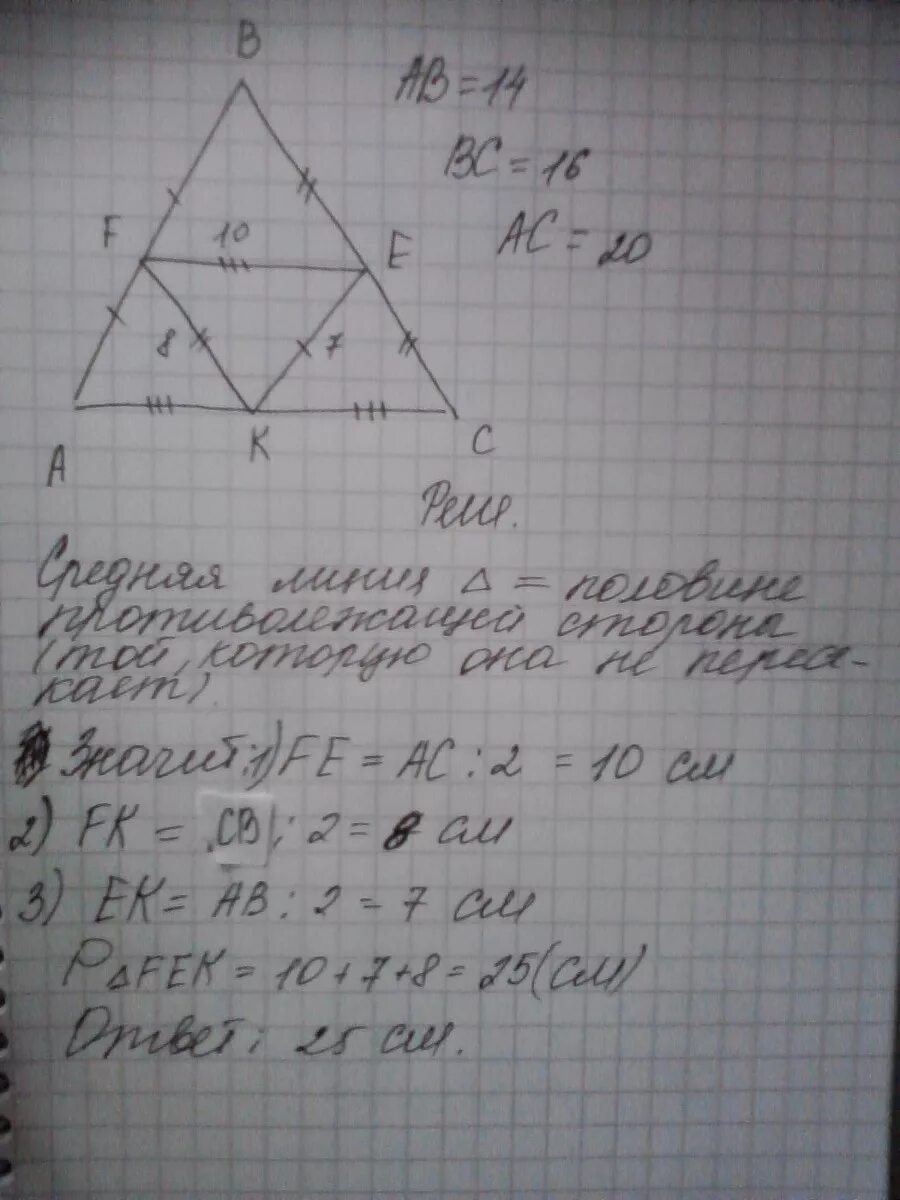 B
AB = 14
BC = 16
AC = 20
F
10
E
8
7
A
K
C
Реш.
Средняя линия △ = половине
противолежащей сторона
(той, которую она не пересе-
кает)
Значит: 1) FE = AC : 2 = 10 см
2) FK = CB : 2 = 8 см
3) EK = AB : 2 = 7 см
P△FEK = 10 + 7 + 8 = 25 (см)
Ответ: 25 см.